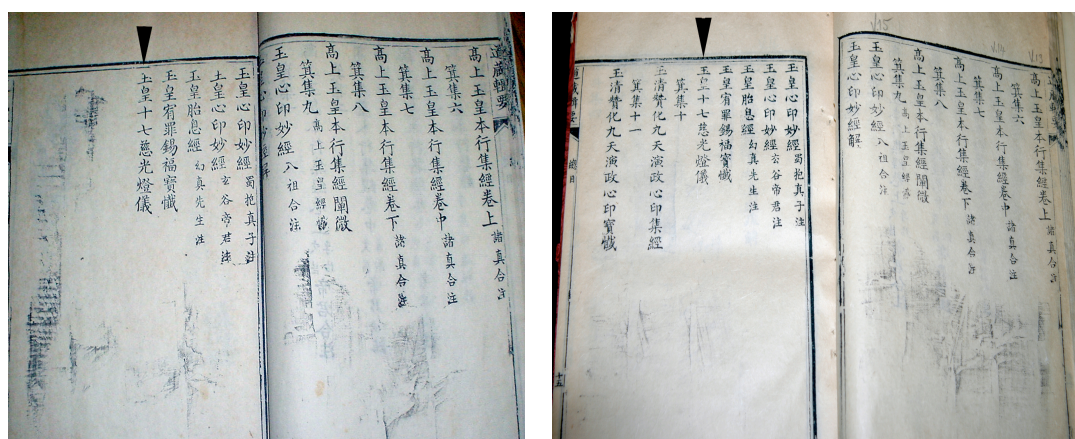 道藏輯要
高上玉皇本行集經卷上 諸真合注
箕集六
高上玉皇本行集經卷中 諸真合注
箕集七
高上玉皇本行集經卷下 諸真合注
箕集八
高上玉皇本行集經闡微
箕集九 高上玉皇經
玉皇心印妙經 八祖合注
玉皇心印妙經解
玉皇心印妙經 蜀抱真子注
玉皇心印妙經 玄谷帝君注
玉皇胎息經 幻真先生注
玉皇宥罪錫福寶懺
玉皇十七慈光燈儀
高上玉皇本行集經卷上 諸真合注
箕集六
高上玉皇本行集經卷中 諸真合注
箕集七
高上玉皇本行集經卷下 諸真合注
箕集八
高上玉皇本行集經闡微
箕集九 高上玉皇經
玉皇心印妙經 八祖合注
玉皇心印妙經解
V15
V14
V13
玉皇心印妙經 蜀抱真子注
玉皇心印妙經 玄谷帝君注
玉皇胎息經 幻真先生注
玉皇宥罪錫福寶懺
玉皇十七慈光燈儀
箕集十
玉清贊化九天演政心印集經
箕集十一
玉清贊化九天演政心印寶懺
道藏輯要 總目 十三